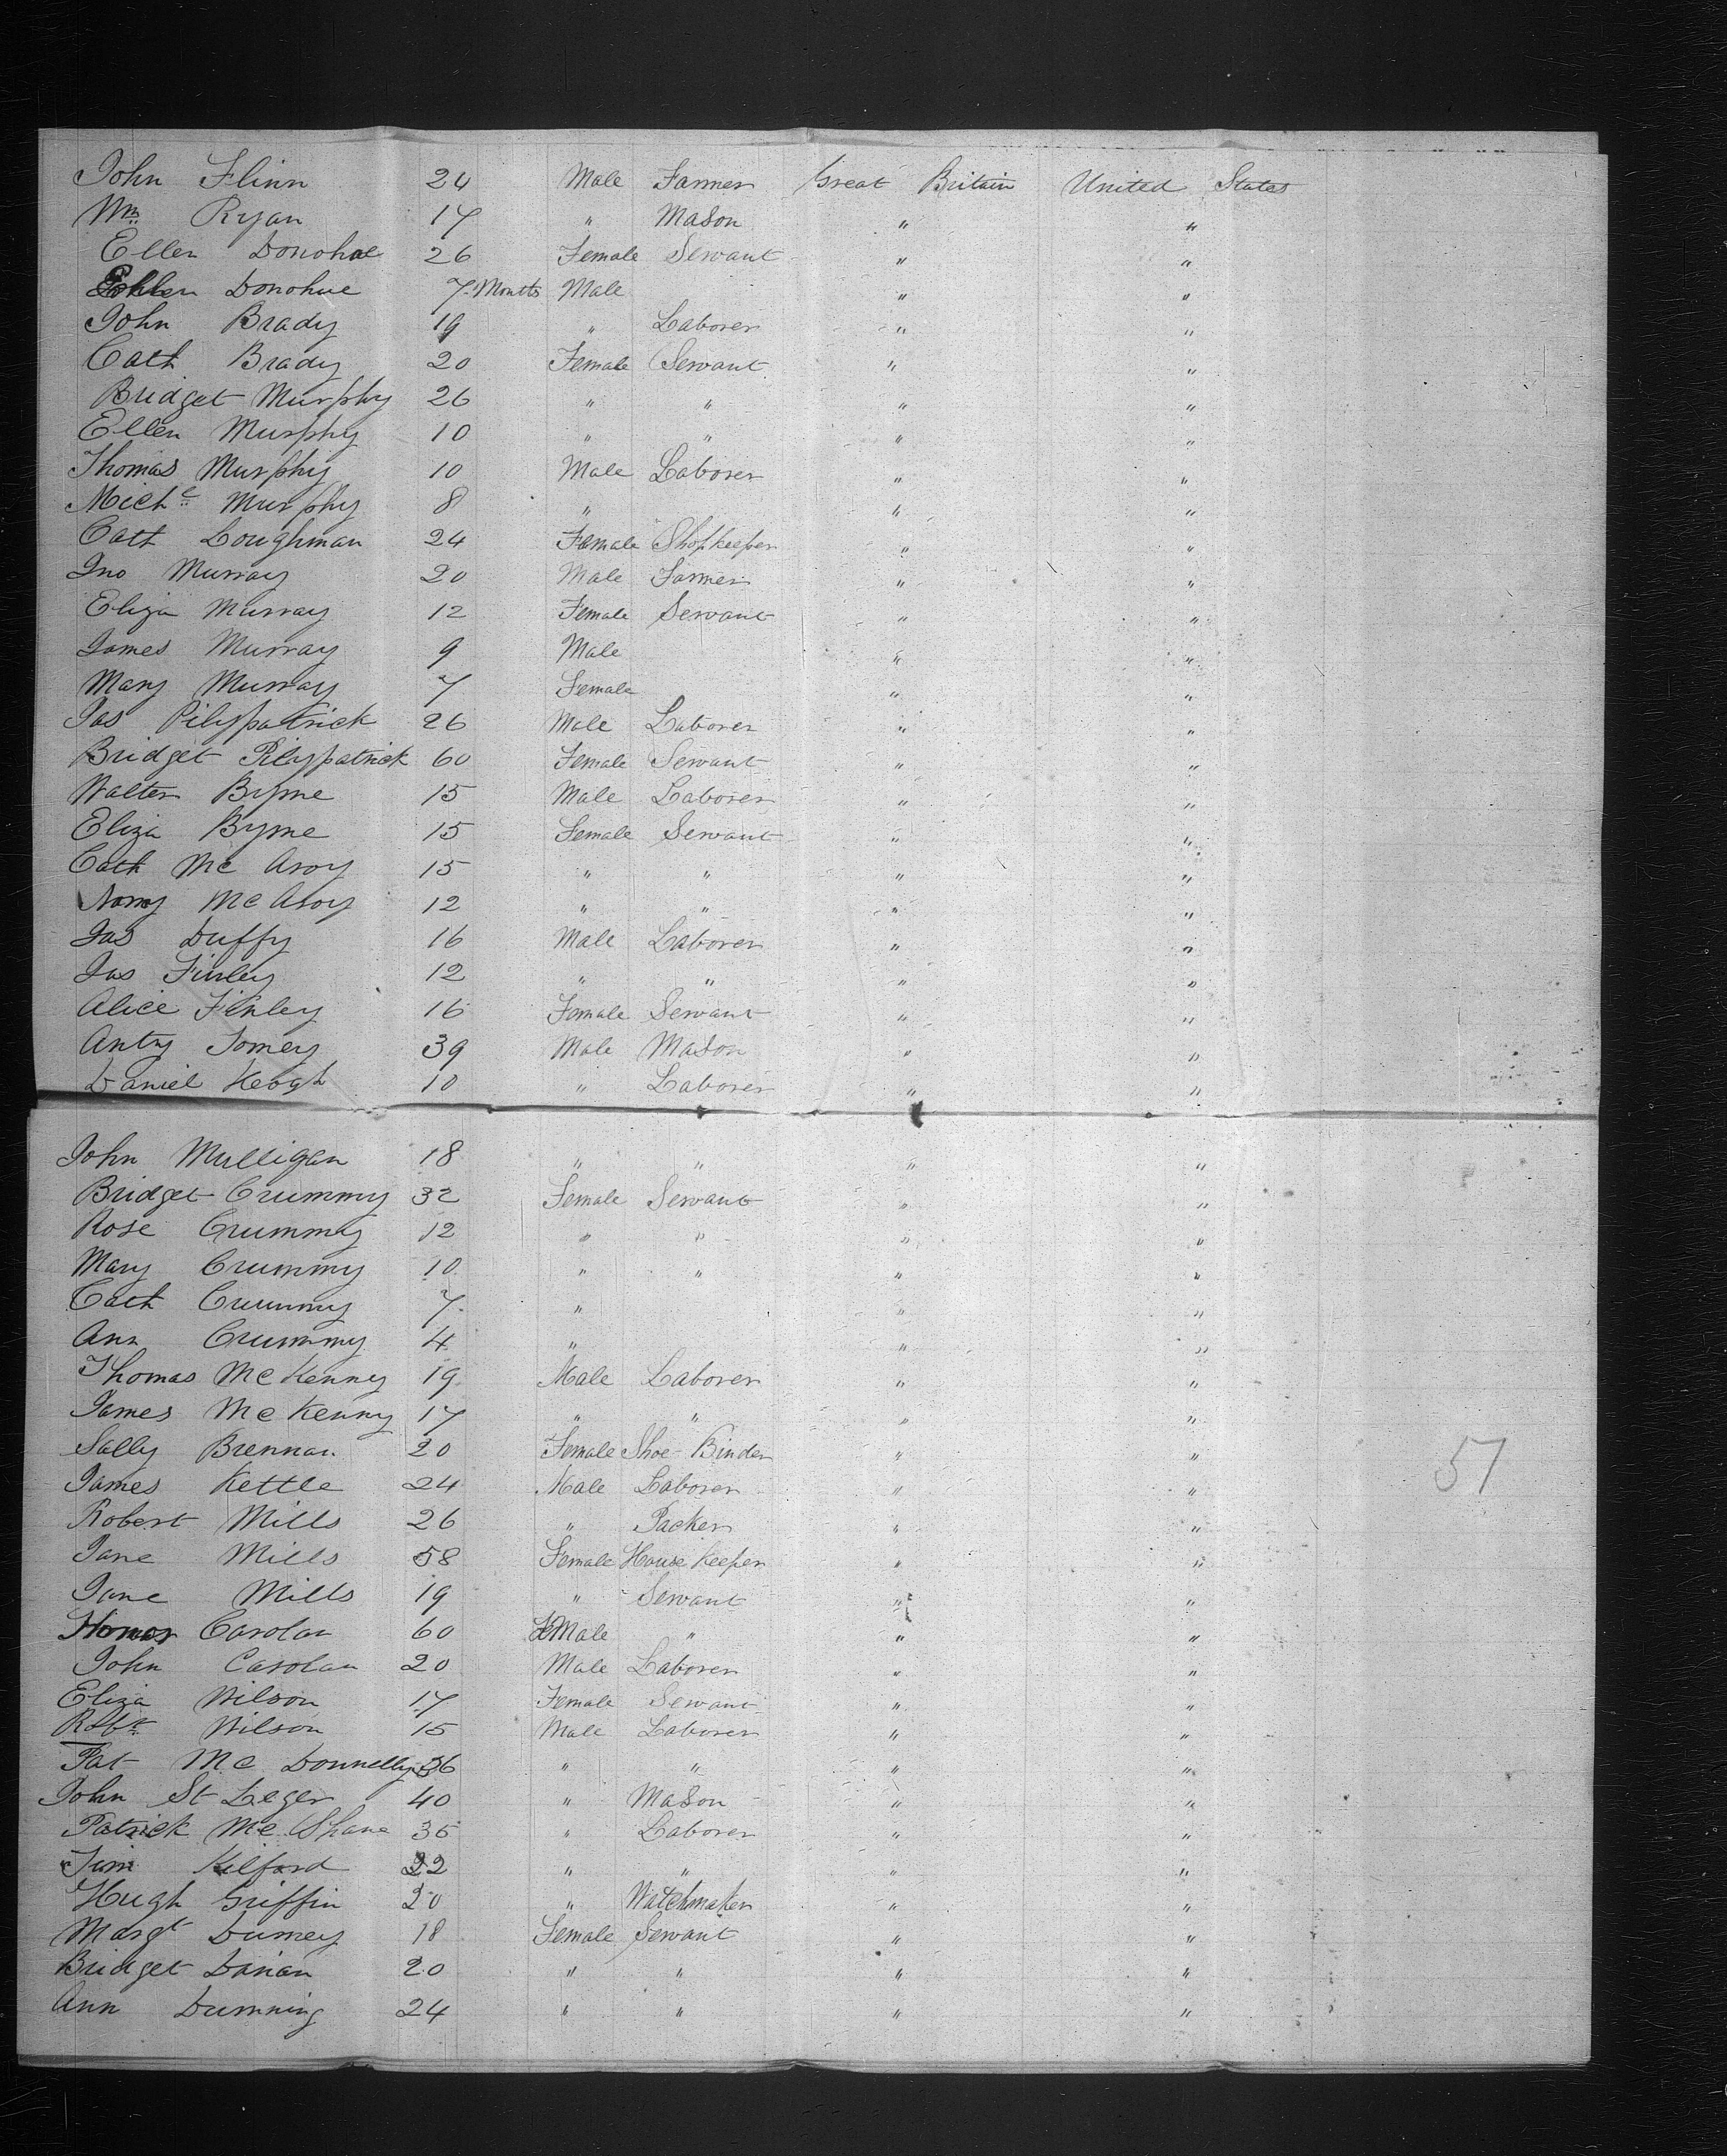 John Flinn 24 Male Farmer Great Britain United States
Wm Ryan 17 " Mason " "
Ellen Donohue 26 Female Servant " "
Donohue 7 Months Male " "
John Brady 19 " Laborer " "
Cath Brady 20 Female Servant " "
Bridget Murphy 26 " " " "
Ellen Murphy 10 " " " "
Thomas Murphy 10 Male Laborer " "
Michl Murphy 8 " " "
Cath Loughman 24 Female Shopkeeper " "
Jno Murray 20 Male Farmer " "
Eliza Murray 12 Female Servant " "
James Murray 9 Male " "
Mary Murray 7 Female " "
Jas 26 Male Laborer " "
Bridget 60 Female Servant " "
Walter Byrne 15 Male Laborer " "
Eliza Byrne 15 Female Servant " "
Cath Mc Avoy 15 " " " "
Mc Avoy 12 " " " "
Jas Duffy 16 Male Laborer " "
Jas Finley 12 " " " "
Alice Finley 16 Female Servant " "
Anty Tomey 39 Male Mason " "
Daniel Keogh 10 " Laborer " "
John Mulligan 18 " " " "
Bridget Crummy 32 Female Servant " "
Rose Crummy 12 " " " "
Mary Crummy 10 " " " "
Cath Crummy 7 " " "
Ann Crummy 4 " " "
Thomas Mc Kenny 19 Male Laborer " "
James Mc Kenny 17 " " " "
Sally Brennan 20 Female Shoe Binder " "
James Kettle 24 Male Laborer " "
Robert Mills 26 " Packer " "
Jane Mills 58 Female House Keeper " "
Jane Mills 19 " Servant " "
Honor Carolan 60 FeMale " " "
John Carolan 20 Male Laborer " "
Eliza Wilson 17 Female Servant " "
Robt Wilson 15 Male Laborer " "
Pat Mc Donnelly 36 " " " "
John St Leger 40 " Mason " "
Patrick Mc Shane 35 " Laborer " "
Tim Kilford 22 " " " "
Hugh Griffin 20 " Watchmaker " "
Margt Dumey 18 Female Servant " "
Bridget 20 " " " "
Ann Dumning 24 " " " "
57